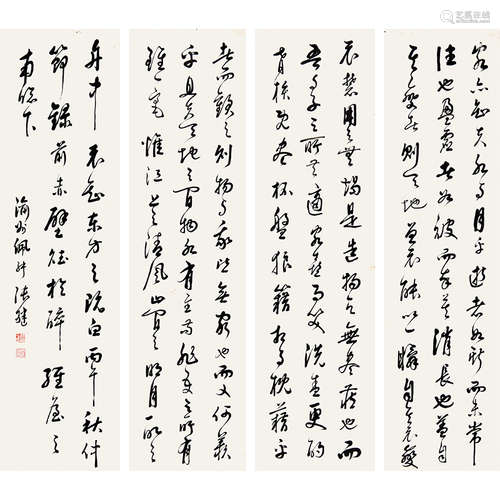 客亦知夫水與月乎逝者如斯而未嘗
往也盈虛者如彼而卒莫消長也蓋自
其變者則天地曾不能以一瞬自其不變
禁用之無竭是造物者無盡藏也而
吾與子之所共適客喜而笑洗盞更酌
肴核既盡杯盤狼籍相與枕藉乎
者而觀之則物與我皆無盡也而又何羨
乎且夫天地之間物各有主苟非吾之所有
雖一毫惟江上清風山間之明月
舟中不知東方之既白丙午秋
節錄前赤壁賦於醉經屋之
南窗下